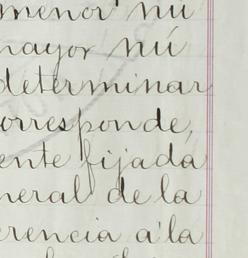 menor nú
mayor nú
determinar
orresponde,
ente fijada
neral de la
erencia a la